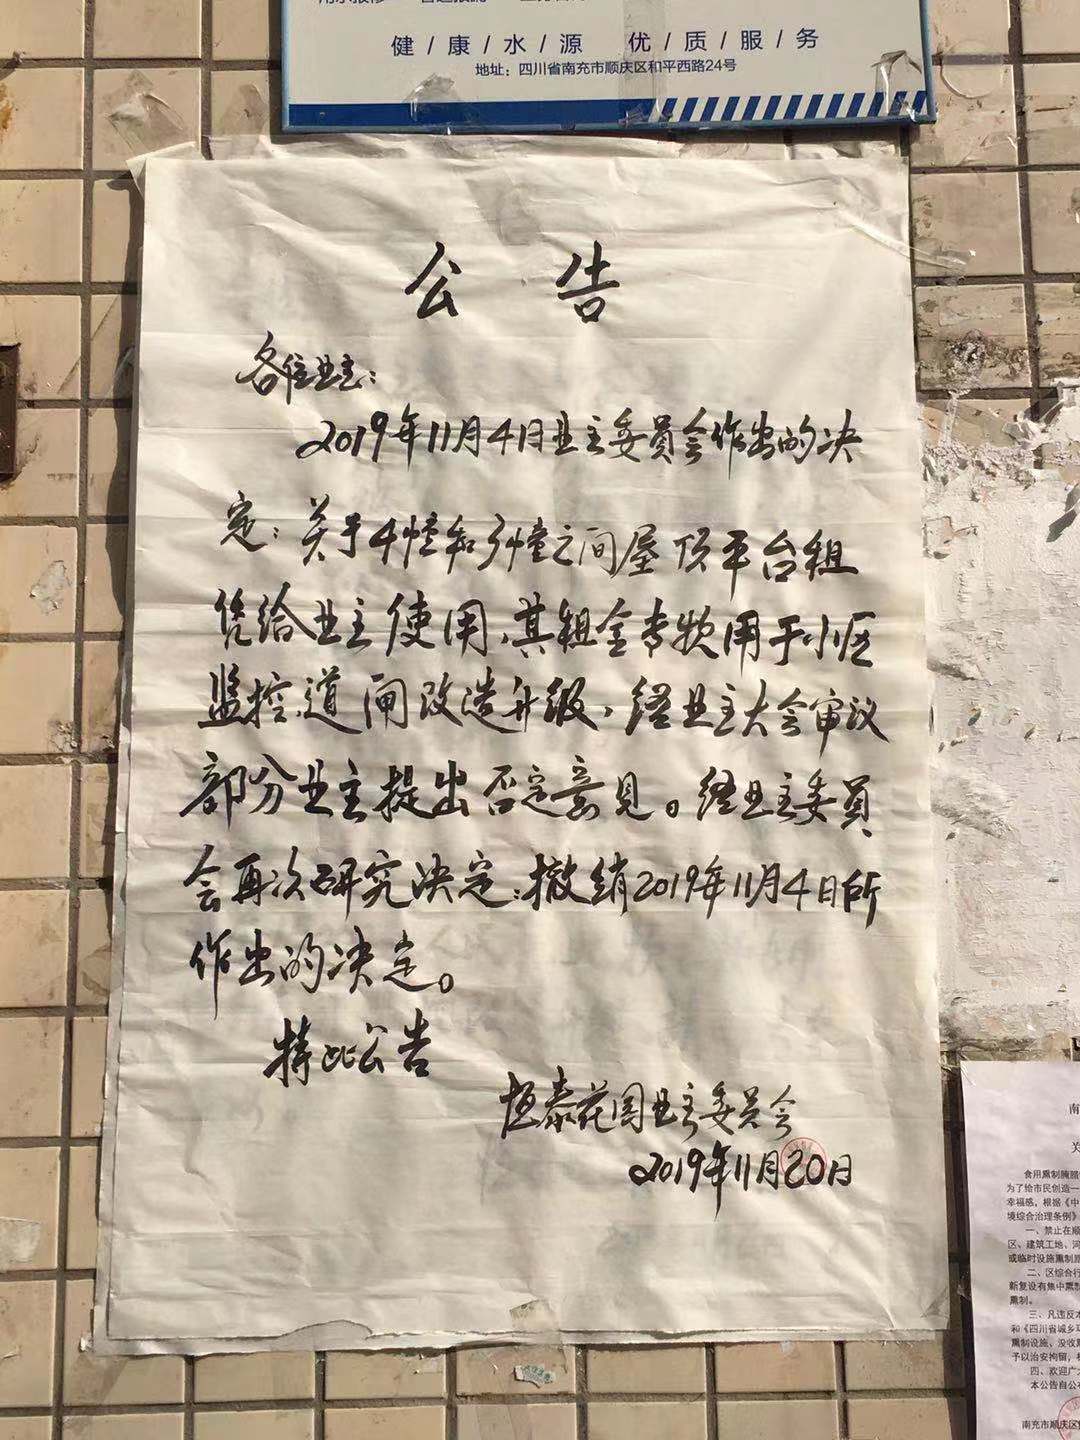 健/康/水/源 优/质/服/务
地址：四川省南充市顺庆区和平西路24号
公告
各位业主：
2019年11月4日业主委员会作出的决
定：关于4幢和3幢之间屋顶平台租
凭给业主使用，其租金专款用于小区
监控道闸改造升级，经业主大会审议
部分业主提出否定意见。经业主委员
会再次研究决定：撤销2019年11月4日所
作出的决定。
特此公告
恒泰花园业主委员会
2019年11月20日
南
关
食用熏制腌腊
为了给市民创造一
幸福感，根据《中
境综合治理条例》
一、禁止在顺
区、建筑工地、河
或临时设施熏制
二、区综合行
新复设有集中熏
熏制。
三、凡违反本
和《四川省城乡环
熏制设施，没收
予以治安拘留，
四、欢迎广
本公告自公布
南充市顺庆区